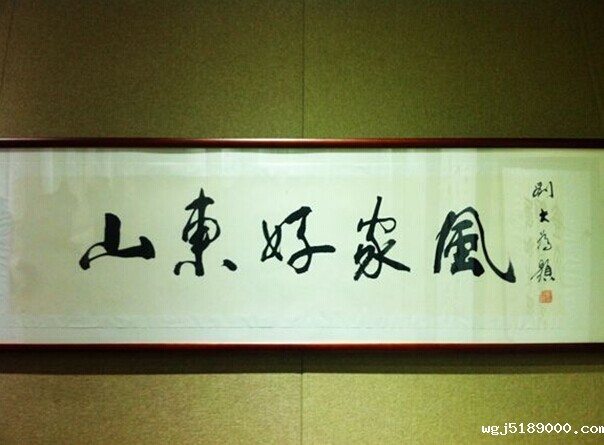 山東好家風
劉大為題
wgj5189000.com